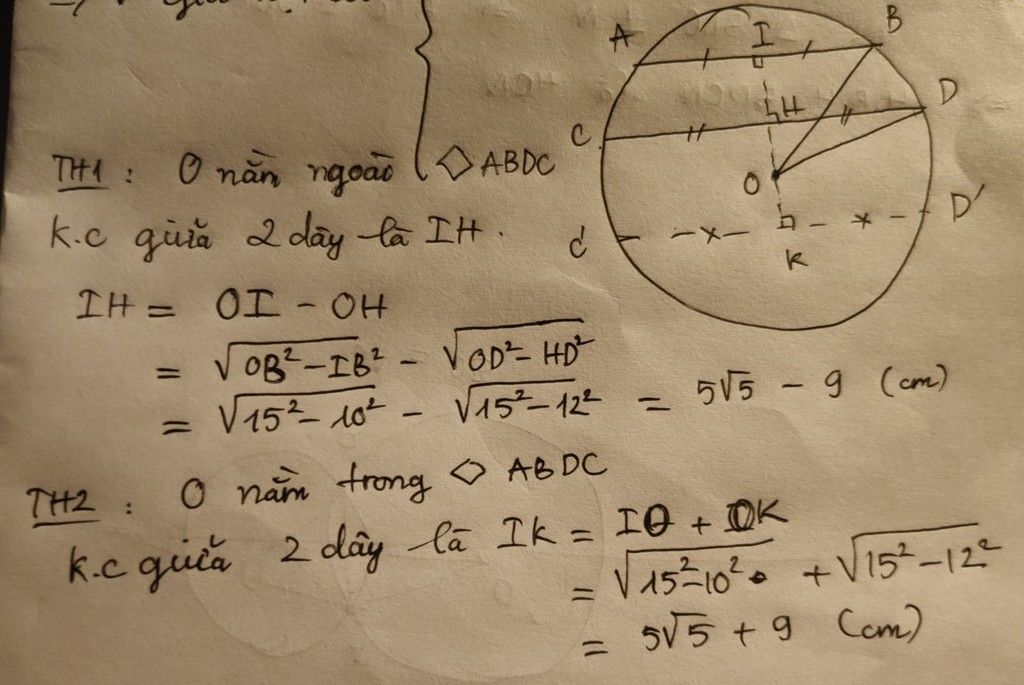 A
I
B
H
D
C
O
D'
C'
K
TH1 : O nằm ngoài ◇ABDC
k.c giữa 2 dây là IH.
IH = OI - OH
= √OB² - IB² - √OD² - HD²
= √15² - 10² - √15² - 12² = 5√5 - 9 (cm)
TH2 : O nằm trong ◇ ABDC
k.c giữa 2 dây là IK = IO + OK
= √15² - 10² + √15² - 12²
= 5√5 + 9 (cm)